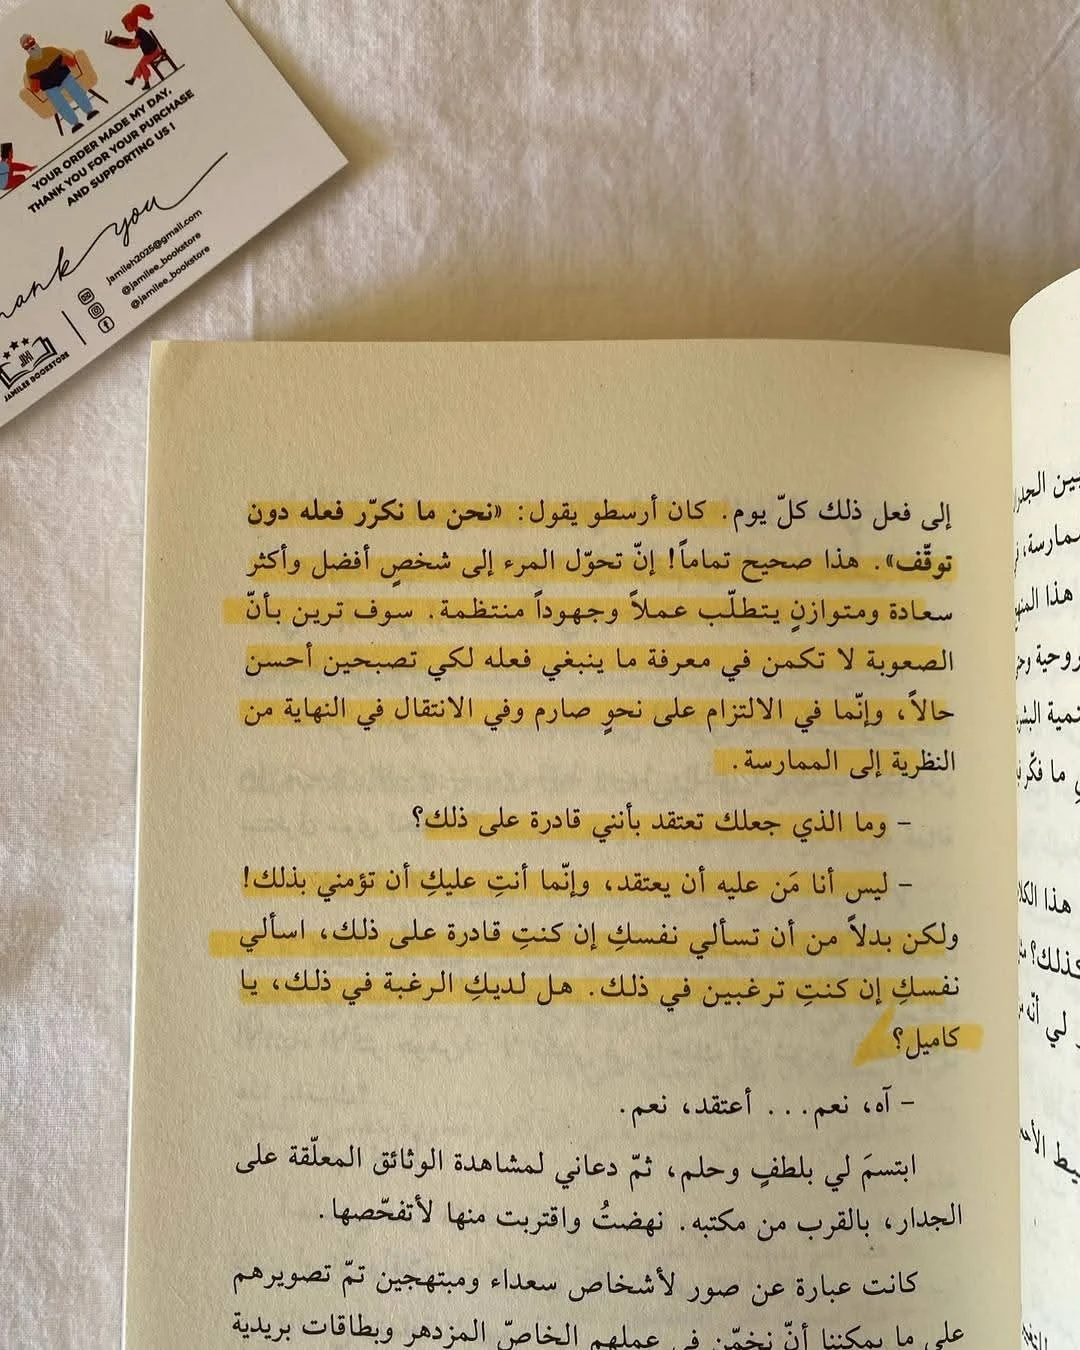 YOUR ORDER MADE MY DAY,
THANK YOU FOR YOUR PURCHASE
AND SUPPORTING US !
you
jamileh2025@gmail.com
@jamilee_bookstore
@jamilee_bookstore
JAMILEE BOOKSTORE
إلى فعل ذلك كلّ يوم. كان أرسطو يقول: «نحن ما نكرّر فعله دون
توقّف». هذا صحيح تماماً! إنّ تحوّل المرء إلى شخصٍ أفضل وأكثر
سعادة ومتوازنٍ يتطلّب عملاً وجهوداً منتظمة. سوف ترين بأنّ
الصعوبة لا تكمن في معرفة ما ينبغي فعله لكي تصبحين أحسن
حالاً، وإنّما في الالتزام على نحوٍ صارم وفي الانتقال في النهاية من
النظرية إلى الممارسة.
– وما الذي جعلك تعتقد بأنني قادرة على ذلك؟
– ليس أنا مَن عليه أن يعتقد، وإنّما أنتِ عليكِ أن تؤمني بذلك!
ولكن بدلاً من أن تسألي نفسكِ إن كنتِ قادرة على ذلك، اسألي
نفسكِ إن كنتِ ترغبين في ذلك. هل لديكِ الرغبة في ذلك، يا
كاميل؟
– آه، نعم... أعتقد، نعم.
ابتسمَ لي بلطفٍ وحلم، ثمّ دعاني لمشاهدة الوثائق المعلّقة على
الجدار، بالقرب من مكتبه. نهضتُ واقتربت منها لأتفحّصها.
كانت عبارة عن صور لأشخاص سعداء ومبتهجين تمّ تصويرهم
على ما يمكننا أنّ نخمّن في عملهم الخاصّ المزدهر وبطاقات بريدية
هذا
هذا
لي أنّه